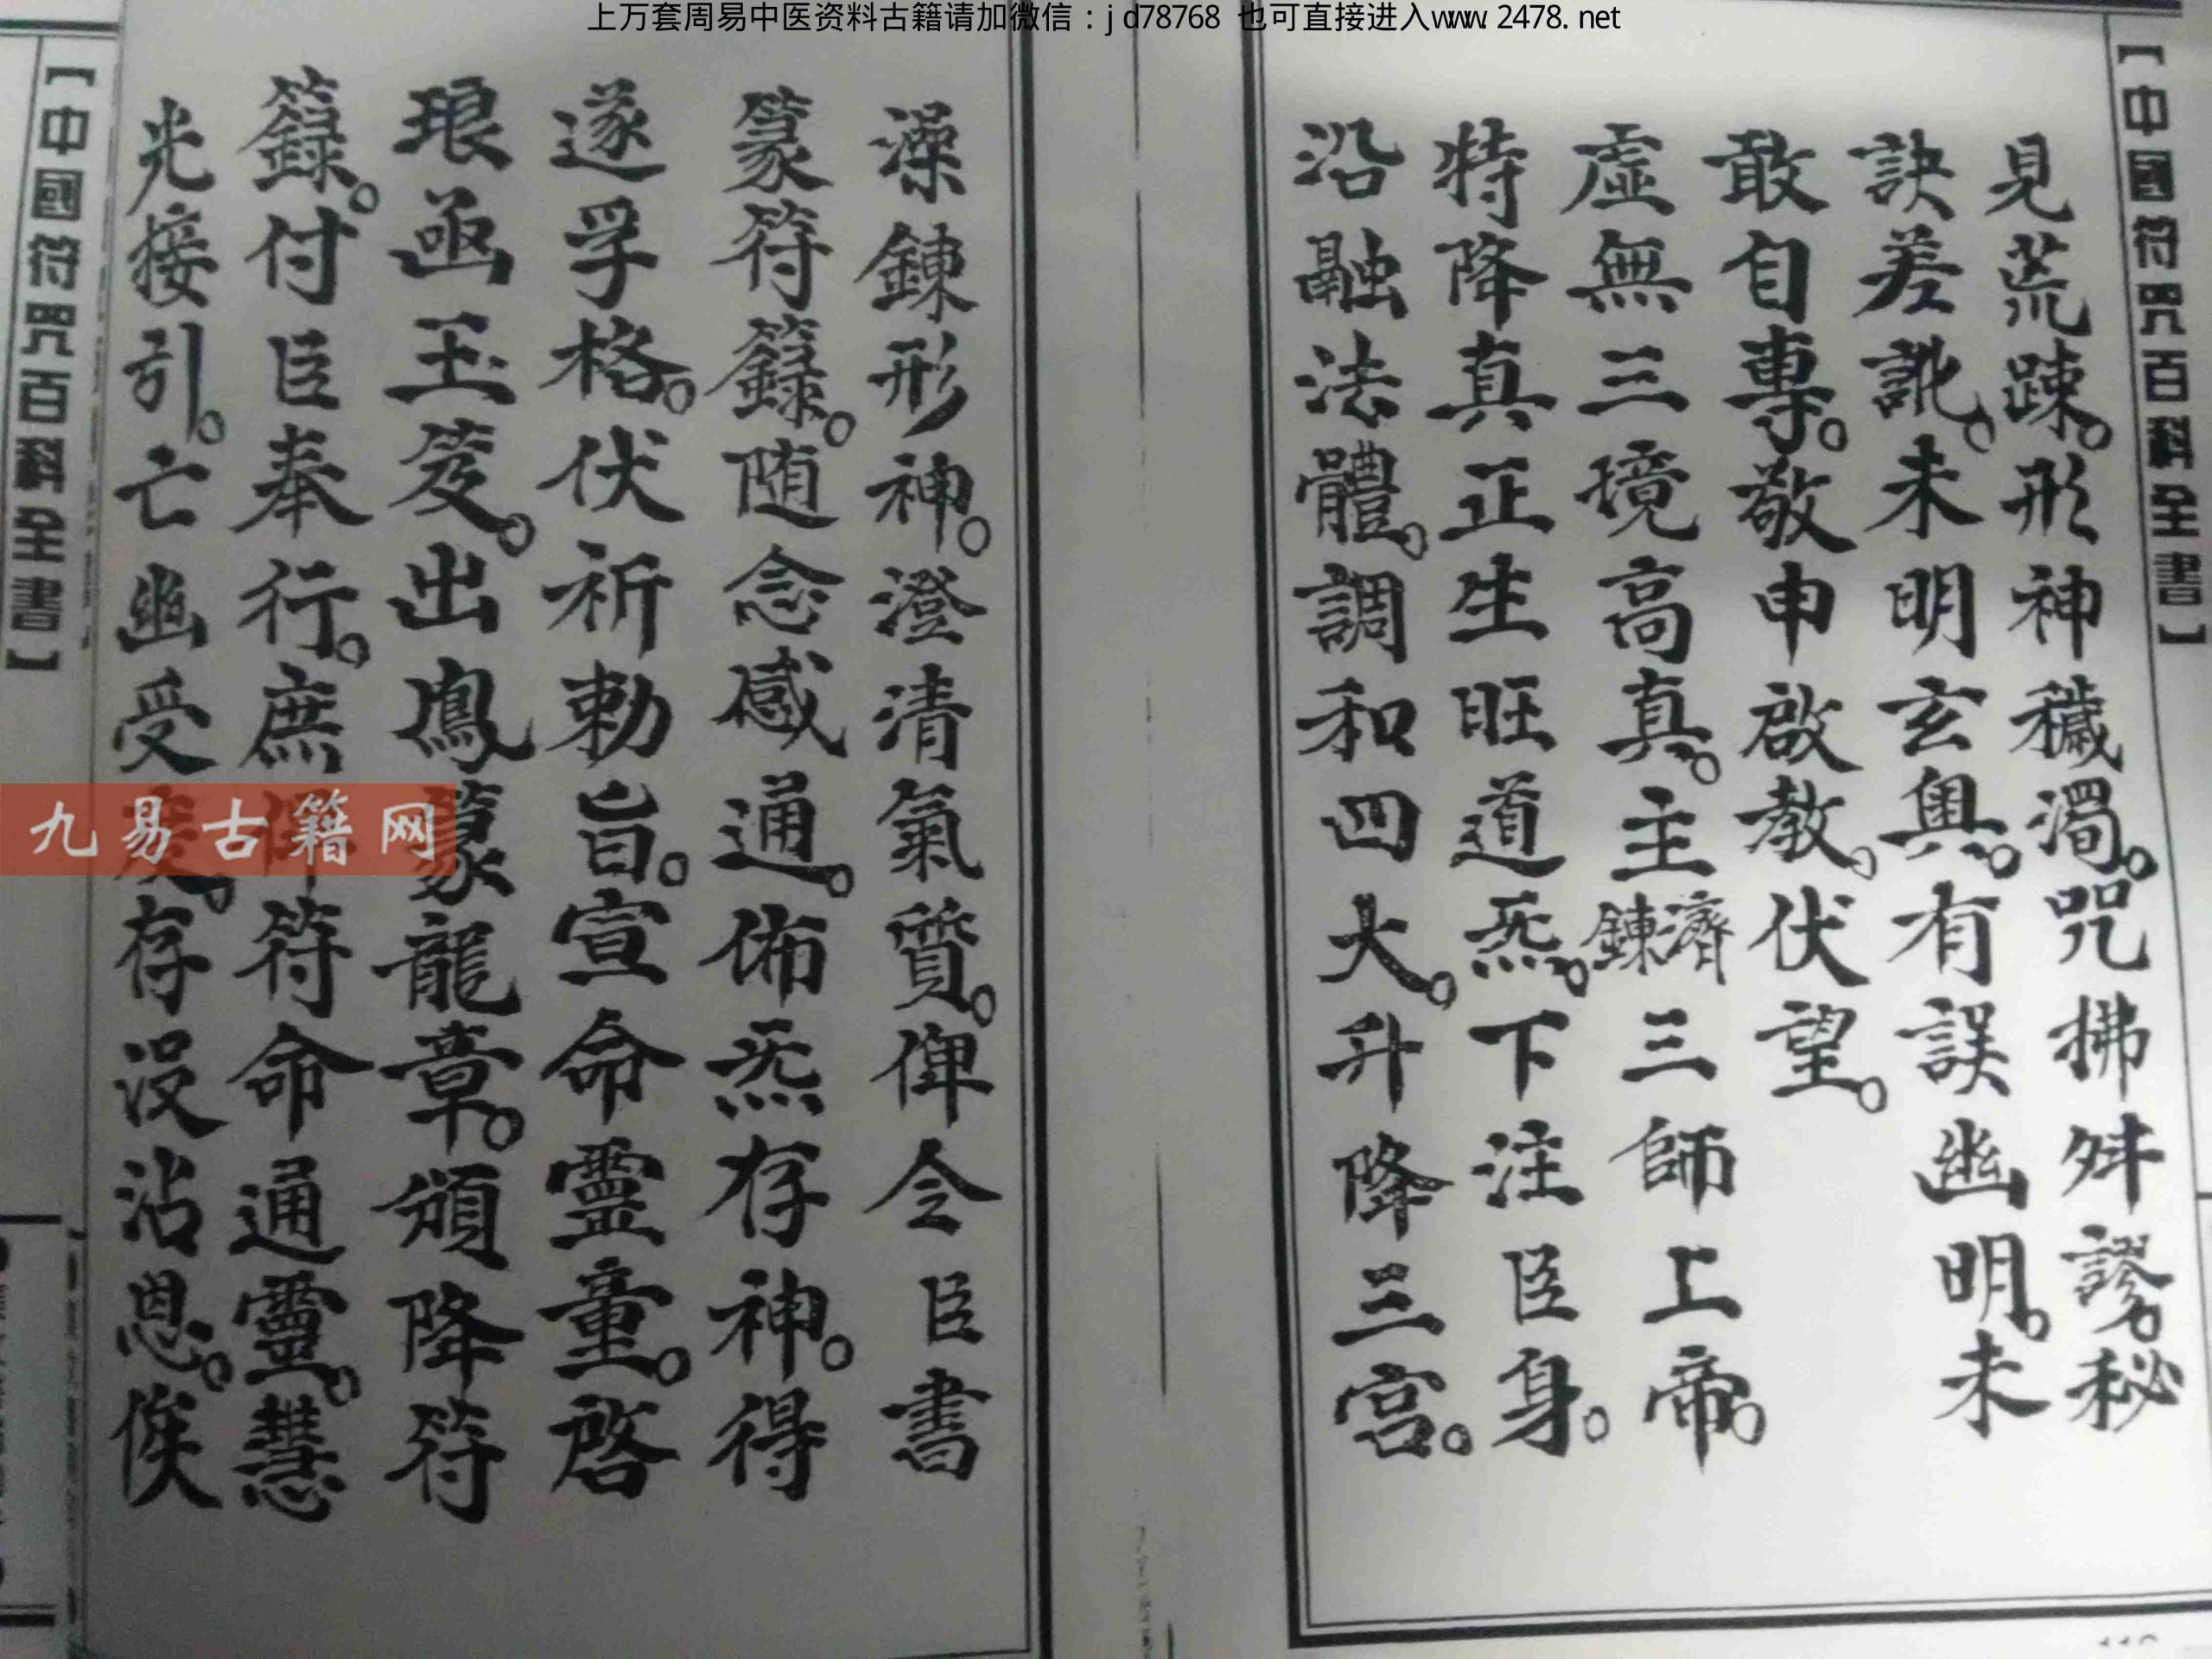 上万套周易中医资料古籍请加微信：jd78768 也可直接进入www.2478.net
【中國符咒百科全書】
見荒踈。形神穢濁。咒拂舛謬。秘
訣差訛。未明玄奥。有誤幽明。未
敢自專。敬申啟教。伏望。
虛無三境高真。主濟鍊三師上帝。
特降真正生旺道炁。下注臣身。
沿融法體。調和四大。升降三宮。
澡鍊形神。澄清氣質。俾令臣書
篆符籙。随念感通。佈炁存神。得
遂孚格。伏祈勅旨。宣命靈童。啓
琅函玉笈。出鳳篆龍章。頒降符
籙。付臣奉行。庶俾符命通靈。慧
光接引。亡幽受度。存沒沾恩。俟
【中國符咒百科全書】
九易古籍网